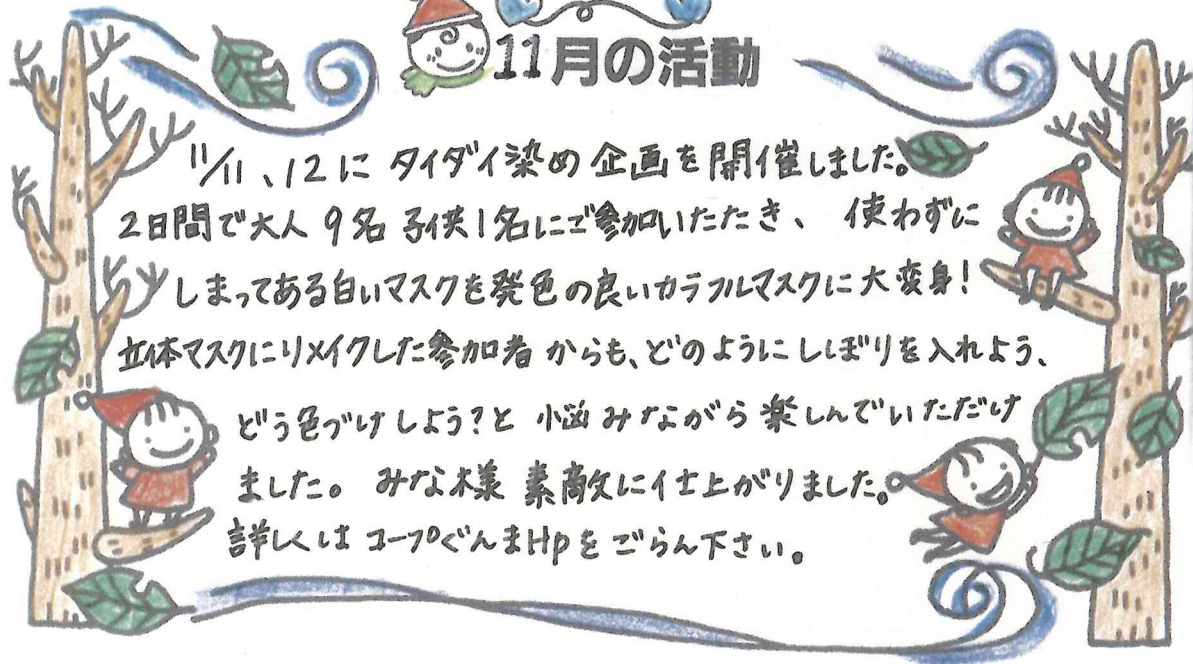 11月の活動
11/11、12に タイダイ染め 企画を開催しました。
2日間で大人 9名 子供1名にご参加いただき、 使わずに
しまってある白いマスクを発色の良いカラフルマスクに大変身!
立体マスクにリメイクした参加者 からも、どのようにしぼりを入れよう、
どう色づけしよう?と 悩みながら楽しんでいただけ
ました。 みな様 素敵に仕上がりました。
詳しくは コープぐんまHpを ごらん下さい。